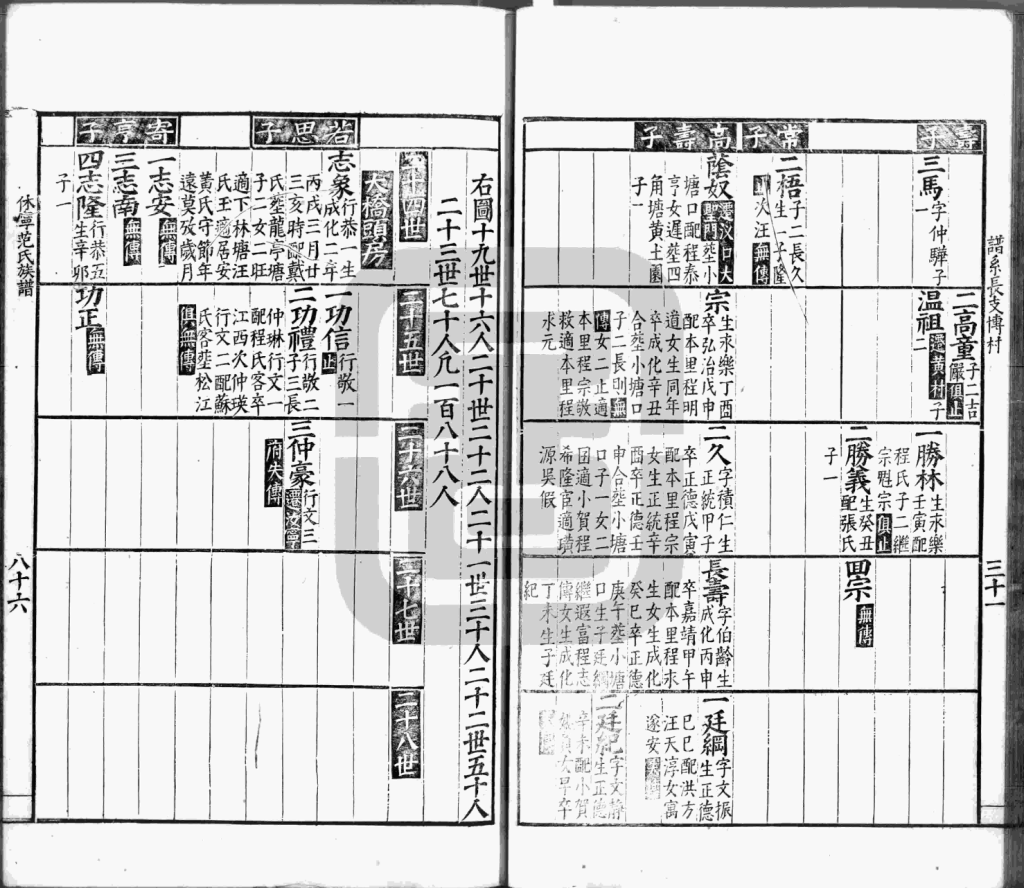 譜系長支博村
三十一
壽子
三馬字仲驊子
二高童子二吉
嚴俱止
溫祖遷黄村子
二
一勝林生永樂
壬寅配
程氏子二繼
宗魁宗俱止
二勝義生癸丑
配張氏
子一
囬宗無傳
常子
二梧子二長久
生一子隆
次汪無傳
高壽子
蔭奴遷汊口大
聖門塟小
塘口配程泰
亨女遲塟四
角塘黄土園
子一
宗生永樂丁酉
卒弘治戊申
配本里程明
道女生同年
卒成化辛丑
合塟小塘口
子二長則無
傳女二止適
本里程宗敬
救適本里程
求元
二久字積仁生
正統甲子
卒正德戊寅
配本里程宗
女生正統辛
酉卒正德壬
申合塟小塘
口子一女二
囡適小賀程
希隆宦適璜
源吳假
長壽字伯齡生
成化丙申
卒嘉靖甲午
配本里程永
生女生成化
癸巳卒正德
庚午塟小塘
口生子廷綱
繼遐富程志
傳女生成化
丁未生子廷
紀
一廷綱字文振
生正德
己巳配洪方
汪天淳女寓
遂安
二廷紀字文靜
生正德
辛未配小賀
女早卒
右圖十九世十六人二十世三十二人二十一世三十人二十二世五十人
二十三世七十人凢一百八十八人
二十四世
二十五世
二十六世
二十七世
二十八世
大橋頭房
若思子
志象行恭一生
成化二年
丙戌三月廿
三亥時配戴
氏塟龍亭塘
子二女二旺
適下林塘汪
氏玉適居安
黄氏守節年
遠莫攷歲月
一功信行敬一
止
二功禮行敬二
子三長
仲琳行文一
配程氏客卒
江西次仲瑛
行文二配蘇
氏客塟松江
俱無傳
三仲豪行文三
遷汝寧
府失傳
寄亨子
一志安無傳
三志南無傳
四志隆行恭五
生辛卯
子一
功正無傳
休寧范氏族譜
八十六